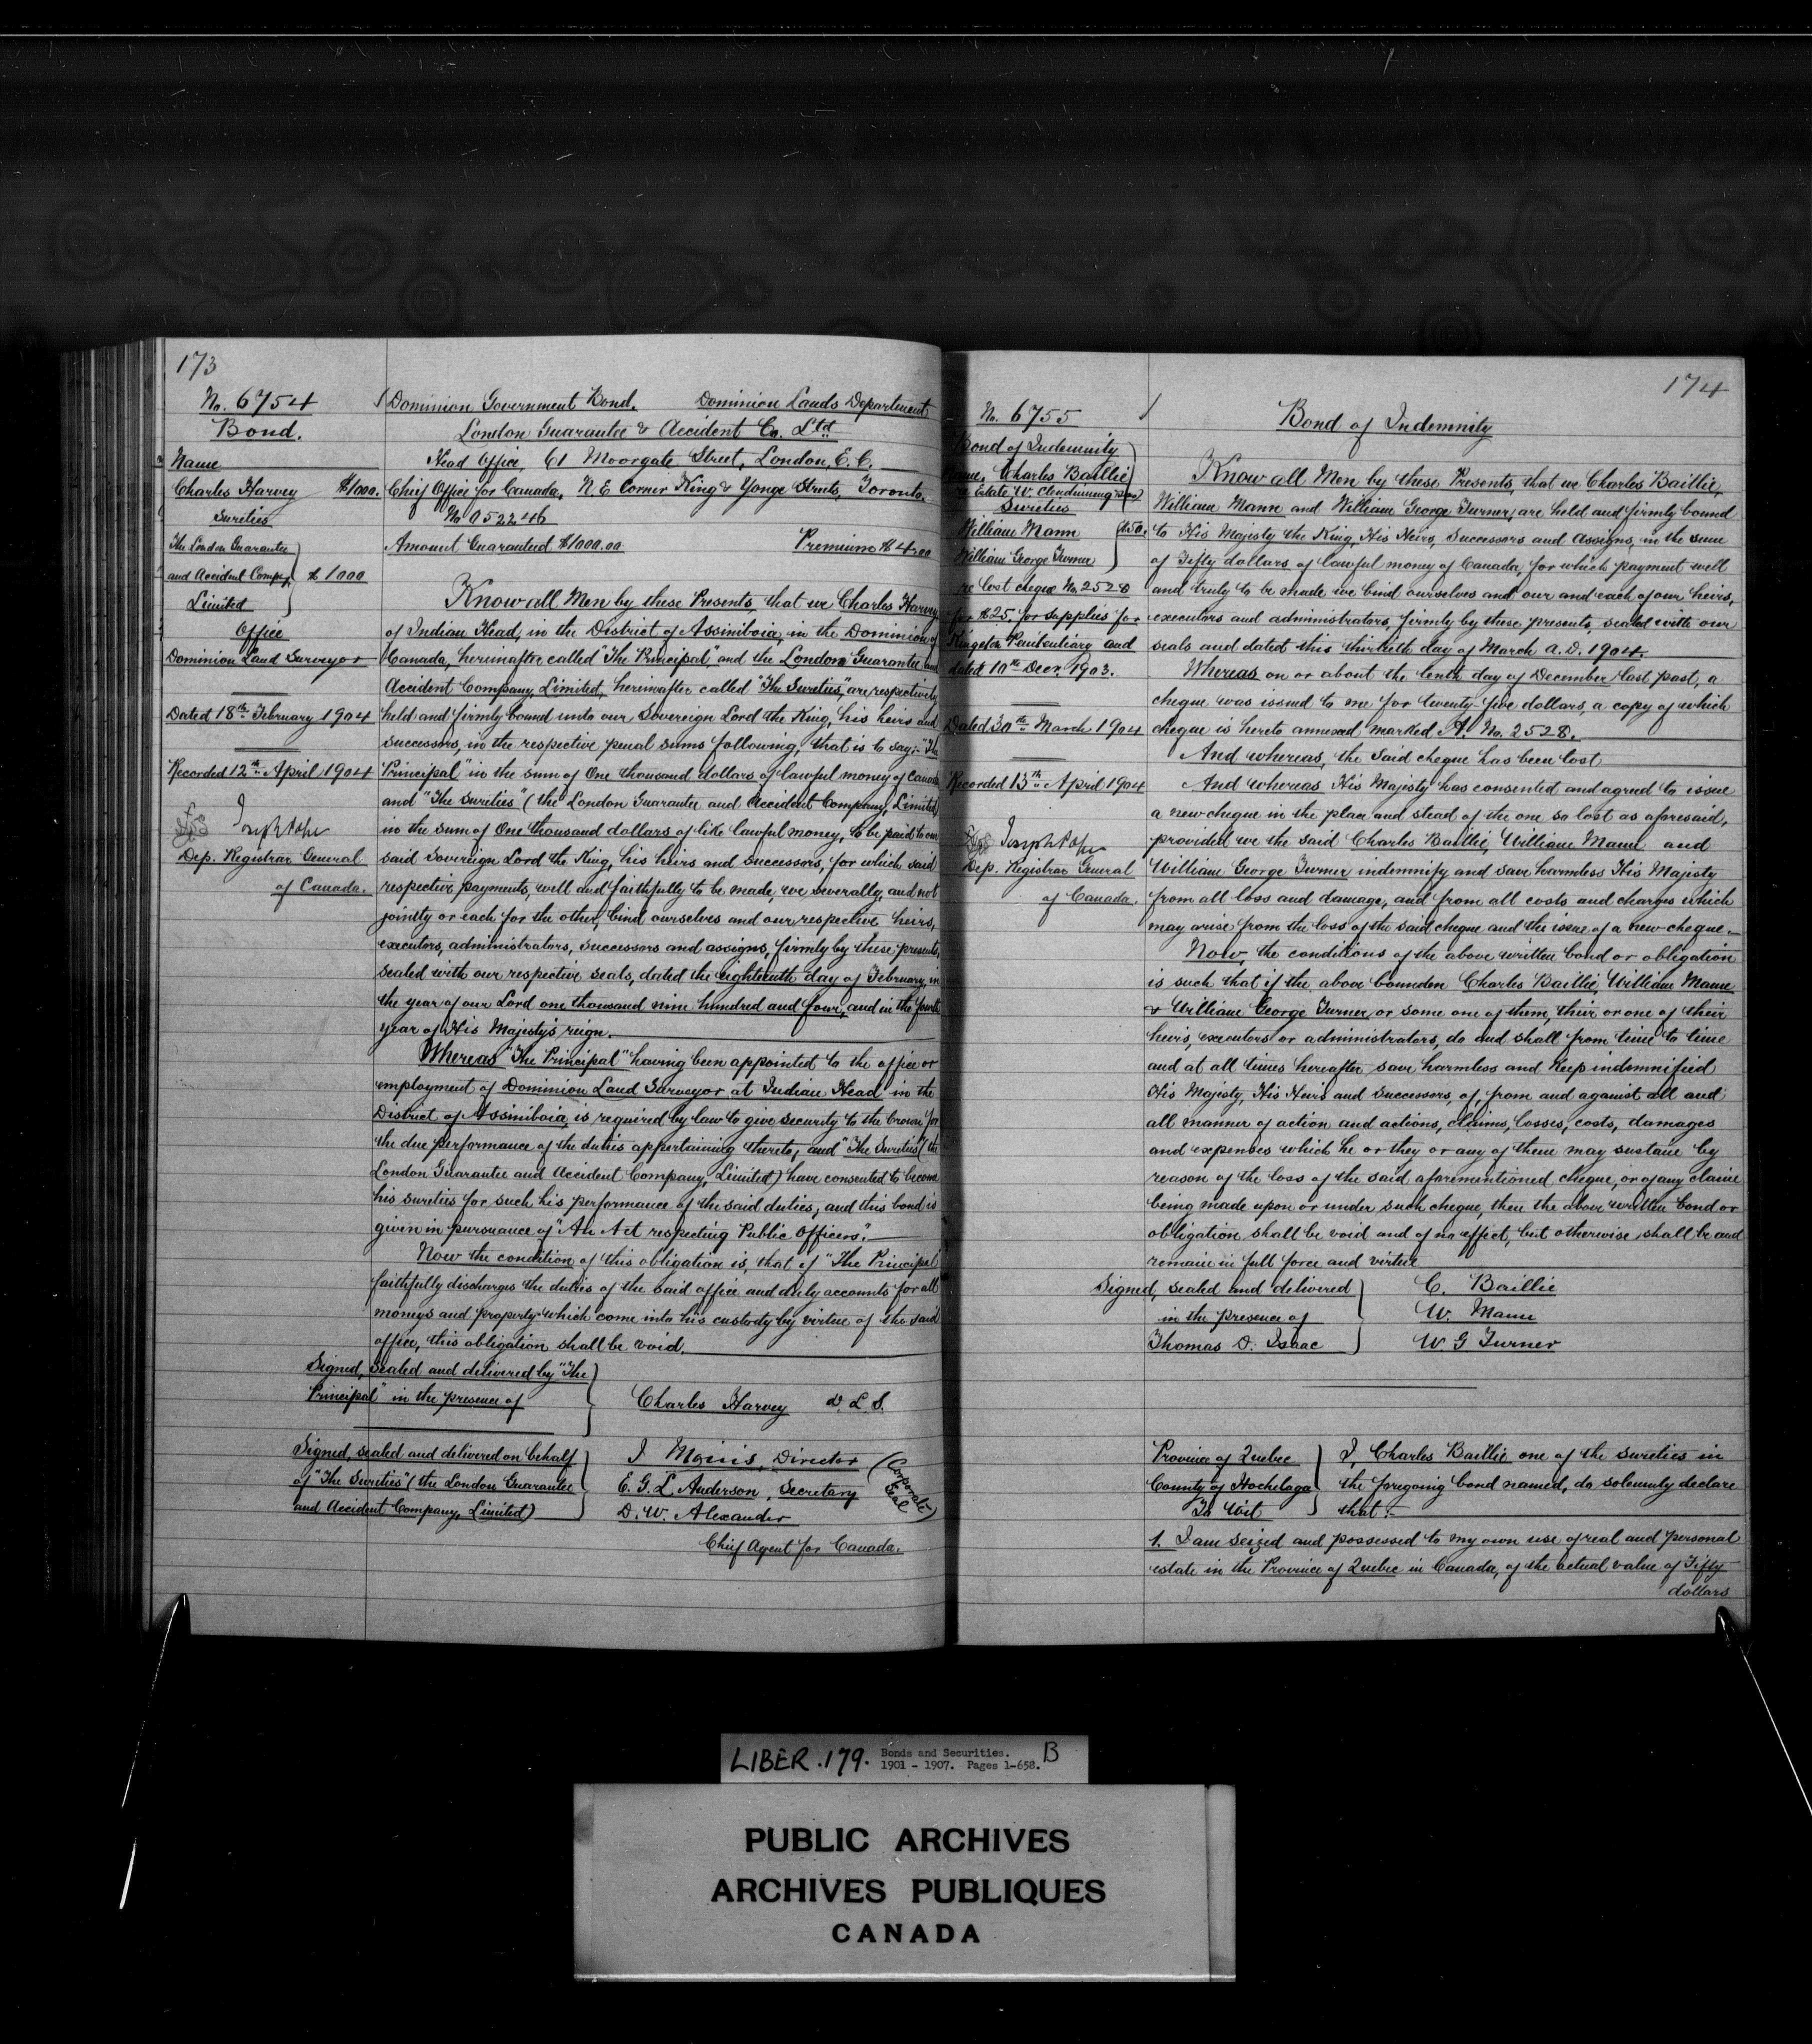 173
No. 6754
Bond.
Name
Charles Harvey $1000.
Sureties
The London Guarantee
and Accident Compy. $1000
Limited
Office
Dominion Land Surveyor
Dated 18th February 1904
Recorded 12th April 1904
Joseph Pope
Dep. Registrar General
of Canada.
Dominion Government Bond. Dominion Lands Department
London Guarantee & Accident Co. Ltd
Head Office, 61 Moorgate Street, London, E.C.
Chief Office for Canada, N.E. Corner King & Yonge Streets, Toronto.
No 052246
Amount Guaranteed $1000.00 Premium $4.00
Know all Men by these Presents, that we Charles Harvey
of Indian Head, in the District of Assiniboia, in the Dominion of
Canada, hereinafter called "The Principal" and the London Guarantee and
Accident Company, Limited, hereinafter called "The Sureties", are respectively
held and firmly bound unto our Sovereign Lord the King, his heirs and
successors, in the respective penal sums following, that is to say:- "The
Principal" in the sum of One thousand dollars of lawful money of Canada
and "The Sureties" (the London Guarantee and Accident Company, Limited)
in the sum of One thousand dollars of like lawful money, to be paid to our
said Sovereign Lord the King, his heirs and successors, for which said
respective payments, well and faithfully to be made, we severally, and not
jointly or each for the other, bind ourselves and our respective heirs,
executors, administrators, successors and assigns, firmly by these presents,
sealed with our respective seals, dated the eighteenth day of February, in
the year of our Lord one thousand nine hundred and four, and in the fourth
year of His Majesty's reign.
Whereas "The Principal" having been appointed to the office or
employment of Dominion Land Surveyor at Indian Head in the
District of Assiniboia, is required by law to give security to the Crown for
the due performance of the duties appertaining thereto, and "The Sureties" (the
London Guarantee and Accident Company, Limited) have consented to become
his sureties for such his performance of the said duties, and this bond is
given in pursuance of "An Act respecting Public Officers".
Now the condition of this obligation is, that if "The Principal"
faithfully discharges the duties of the said office and duly accounts for all
moneys and property which come into his custody by virtue of the said
office, this obligation shall be void.
Signed, sealed and delivered by "The
Principal" in the presence of
Charles Harvey D.L.S.
Signed, sealed and delivered on behalf
of "The Sureties" (the London Guarantee
and Accident Company, Limited)
Director
E.G.L. Anderson, Secretary
D.W. Alexander
Chief Agent for Canada.
(Corporate Seal)
174
No. 6755
Bond of Indemnity
Name, Charles Baillie
re Estate W. Clendinneng
Sureties
William Mann
William George Turner
$50.
re lost cheque No. 2528
for $25. for supplies for
Kingston Penitentiary and
dated 10th Decr. 1903.
Dated 30th March 1904
Recorded 13th April 1904
Joseph Pope
Dep. Registrar General
of Canada.
Bond of Indemnity
Know all Men by these Presents, that we Charles Baillie,
William Mann and William George Turner, are held and firmly bound
to His Majesty the King, His Heirs, Successors and Assigns, in the sum
of Fifty dollars of lawful money of Canada, for which payment well
and truly to be made we bind ourselves and our and each of our heirs,
executors and administrators, firmly by these presents, sealed with our
seals and dated this thirtieth day of March A.D. 1904.
Whereas on or about the tenth day of December last past, a
cheque was issued to me for twenty-five dollars, a copy of which
cheque is hereto annexed marked A. No. 2528.
And whereas, the said cheque has been lost
And whereas His Majesty has consented and agreed to issue
a new cheque in the place and stead of the one so lost as aforesaid,
provided we the said Charles Baillie, William Mann and
William George Turner indemnify and save harmless His Majesty
from all loss and damage, and from all costs and charges which
may arise from the loss of the said cheque and the issue of a new cheque.
Now, the conditions of the above written bond or obligation
is such that if the above bounden Charles Baillie, William Mann
& William George Turner or some one of them, their or one of their
heirs, executors or administrators, do and shall from time to time
and at all times hereafter save harmless and keep indemnified
His Majesty, His Heirs and Successors, of, from and against all and
all manner of action and actions, claims, losses, costs, damages
and expenses which he or they or any of them may sustain by
reason of the loss of the said aforementioned cheque, or of any claim
being made upon or under such cheque, then the above written bond or
obligation shall be void and of no effect, but otherwise, shall be and
remain in full force and virtue
Signed, sealed and delivered
in the presence of
Thomas D. Isaac
C. Baillie
W. Mann
W G Turner
Province of Quebec
County of Hochelaga
To Wit
I, Charles Baillie one of the sureties in
the foregoing bond named, do solemnly declare
that:-
1. I am seized and possessed to my own use of real and personal
estate in the Province of Quebec in Canada, of the actual value of Fifty
dollars
LIBER .179. Bonds and Securities. B
1901 - 1907. Pages 1-658.
PUBLIC ARCHIVES
ARCHIVES PUBLIQUES
CANADA